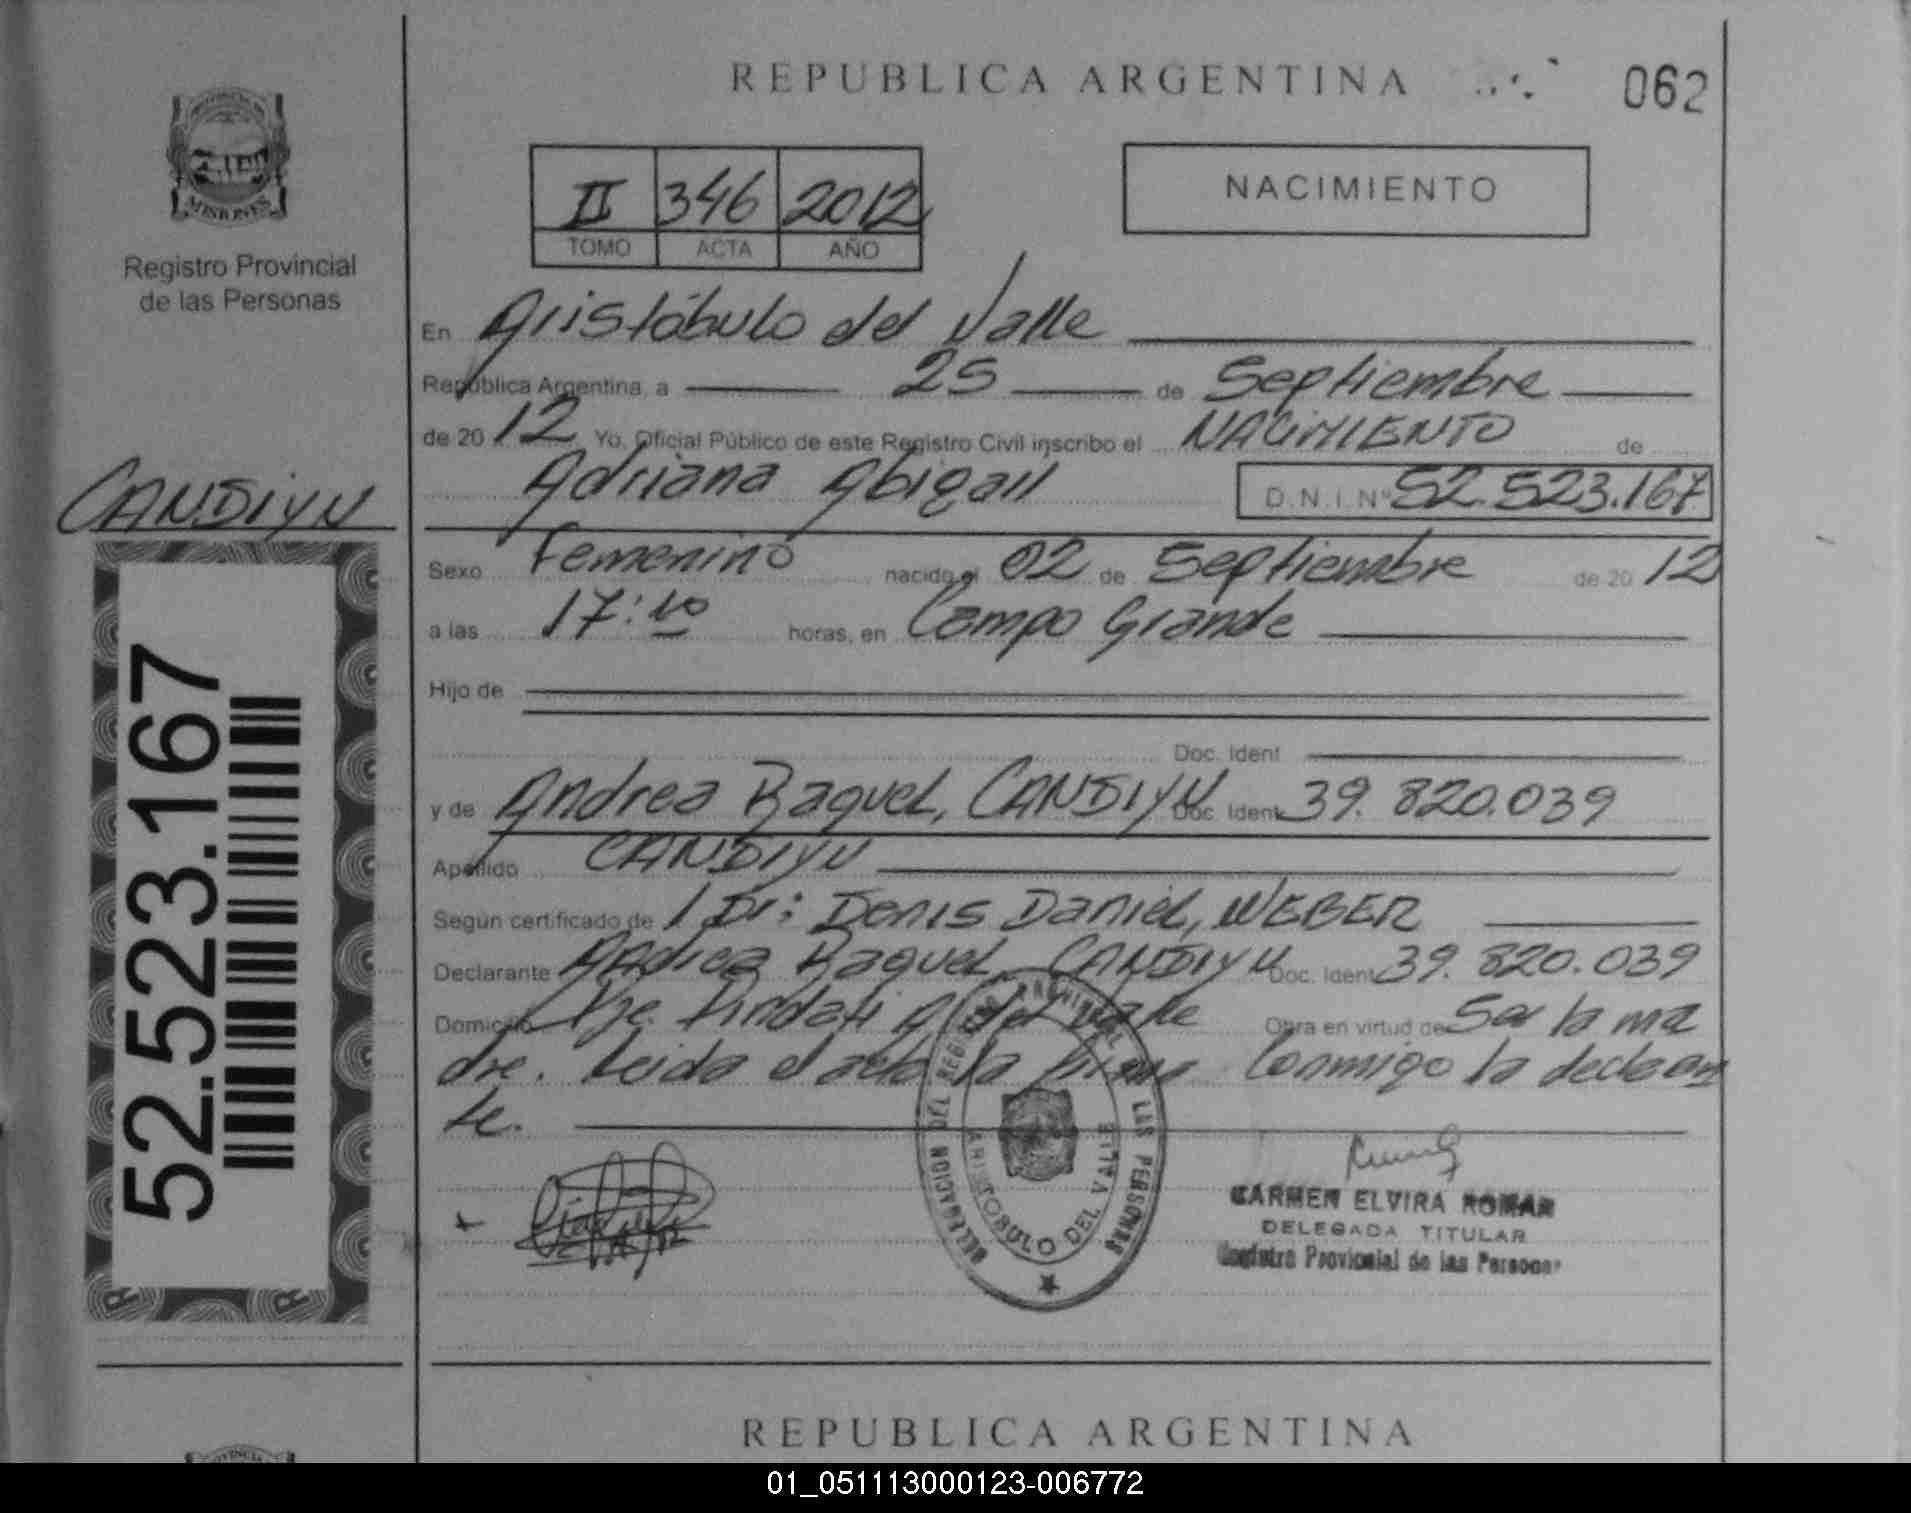 REPUBLICA ARGENTINA
062
II 346 2012
TOMO ACTA AÑO
NACIMIENTO
MISIONES
Registro Provincial
de las Personas
En Aristóbulo del Valle
República Argentina, a 25 de Septiembre
de 20 12 Yo, Oficial Público de este Registro Civil inscribo el NACIMIENTO de
Adriana Abigail D.N.I.Nº 52.523.167
CANDIYU
Sexo Femenino nacido el 02 de Septiembre de 20 12
a las 17:10 horas, en Campo Grande
Hijo de
Doc. Ident
y de Andrea Raquel, CANDIYU Doc. Ident 39.820.039
Apellido CANDIYU
Según certificado de Dr: Denis Daniel, WEBER
Declarante Andrea Raquel, CANDIYU Doc. Ident 39.820.039
Domicilio A. del Valle Obra en virtud de Ser la ma
dre. Leida el acta la firma Conmigo la declaran
te.
52.523.167
DELEGACION DEL REGISTRO PROVINCIAL DE LAS PERSONAS
ARISTOBULO DEL VALLE
CARMEN ELVIRA ROMAN
DELEGADA TITULAR
Registro Provincial de las Personas
REPUBLICA ARGENTINA
01_051113000123-006772